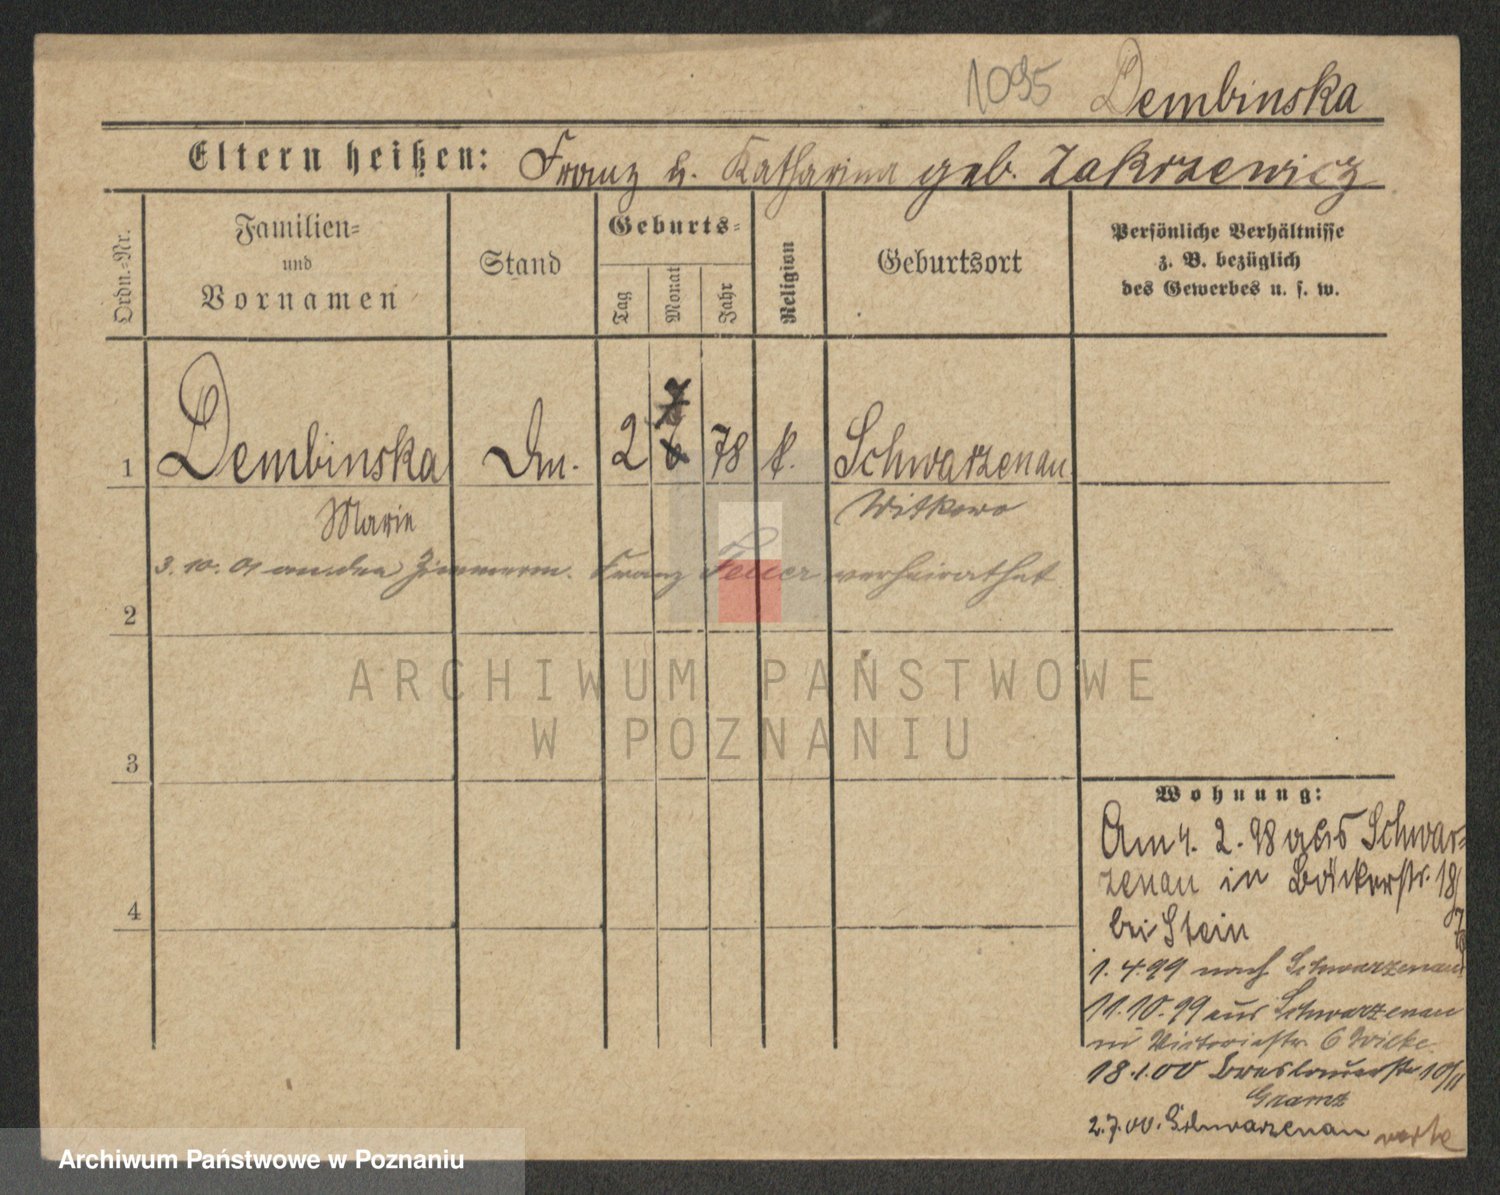 1095 Dembinska
Eltern heißen: Franz u. Katharina geb. Zakrzewicz
Ordn.-Nr.
Familien-
und
Vornamen
Stand
Geburts-
Tag
Monat
Jahr
Religion
Geburtsort
Persönliche Verhältnisse
z. B. bezüglich
des Gewerbes u. s. w.
1 Dembinska 2 7 6 78 k. Schwarzenau
Marie Witkowo
3. 10. 01 an den Zimmerm. Franz Feller verheirathet
2
3
4
Wohnung:
Am 4. 2. 98 aus Schwar-
zenau in Bäckerstr. 18
bei Stein
1. 4. 99 nach Schwarzenau
11. 10. 99 aus Schwarzenau
in Victoriastr. 6 Wilke
18. 1. 00 Breslauerstr 10/11
Gramz
2. 7. 00. Schwarzenau
ARCHIWUM PAŃSTWOWE
W POZNANIU
Archiwum Państwowe w Poznaniu